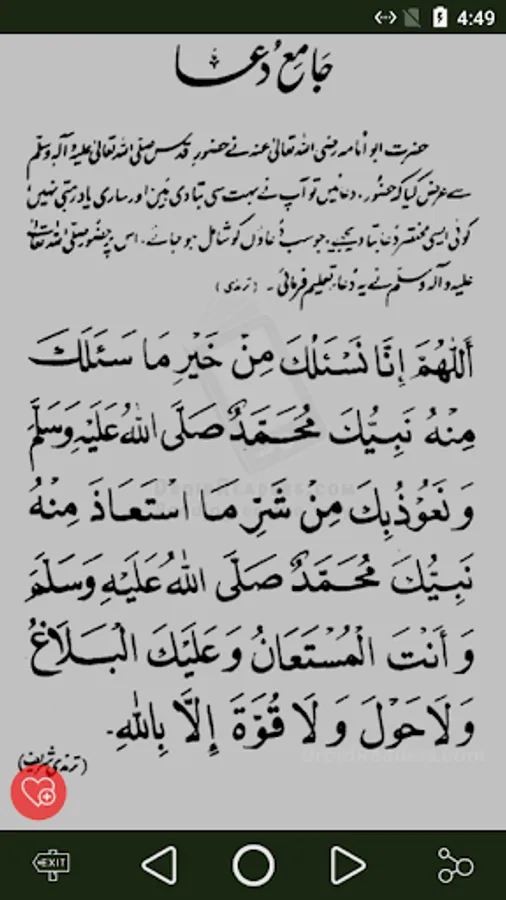 4:49
جامع دُعا
حضرت ابو امامہ رضی اللہ تعالیٰ عنہ نے حضور قدس صلی اللہ تعالیٰ علیہ وآلہ وسلم
سے عرض کیا کہ حضور، دعائیں تو آپ نے بہت سی بتا دی ہیں اور ساری یاد رہتی نہیں
کوئی ایسی مختصر دعا بتا دیجیے، جو سب دُعاؤں کو شامل ہو جائے۔ اس پر حضور صلی اللہ تعالیٰ
علیہ وآلہ وسلم نے یہ دُعا تعلیم فرمائی۔ (ترمذی)
أَللّٰهُمَّ إِنَّا نَسْئَلُكَ مِنْ خَيْرِ مَا سَئَلَكَ
مِنْهُ نَبِيُّكَ مُحَمَّدٌ صَلَّى اللّٰهُ عَلَيْهِ وَسَلَّمَ
وَنَعُوْذُ بِكَ مِنْ شَرِّ مَا اسْتَعَاذَ مِنْهُ
نَبِيُّكَ مُحَمَّدٌ صَلَّى اللّٰهُ عَلَيْهِ وَسَلَّمَ
وَأَنْتَ الْمُسْتَعَانُ وَعَلَيْكَ الْبَلَاغُ
وَلَا حَوْلَ وَلَا قُوَّةَ إِلَّا بِاللّٰهِ۔
(ترمذی شریف)
EXIT